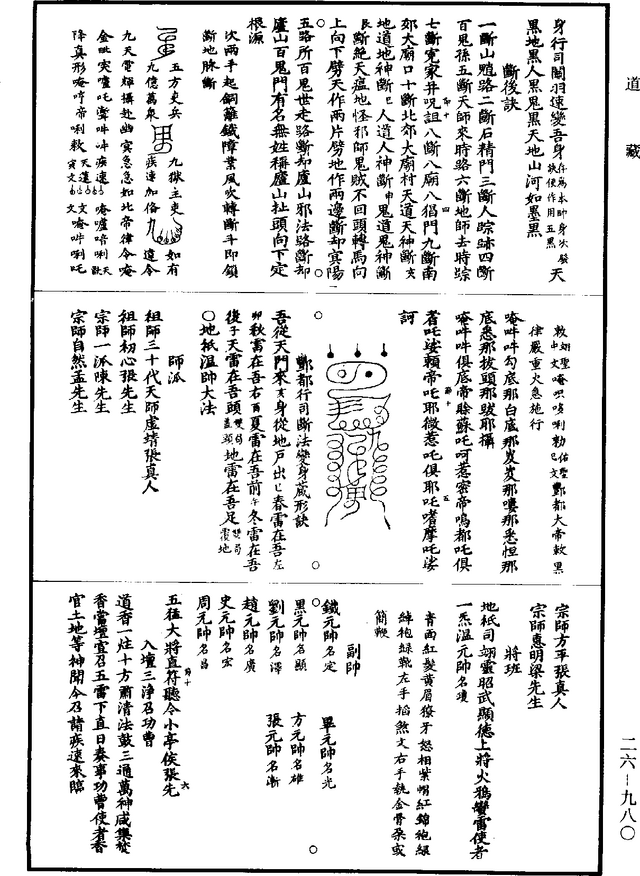 道藏
身行司關羽速變吾身
天
黑地黑人黑鬼黑天地山河如墨黑
斷後訣
一斷山魈路二斷石精門三斷人踪跡四斷
百鬼孫五斷天師來時路六斷地師去時踪
七斷冤家并呪詛八斷八廟八猖門九斷南
郊大廟口十斷北郊大廟村天道天神斷亥
地道地神斷巳人道人神斷申鬼道鬼神斷
辰斷絕天瘟地怪邪師鬼賊不回頭轉馬向
上向下劈天作兩片劈地作兩邊斷却冥陽
五路所百鬼世走路斷却廬山邪法路斷却
廬山百鬼門有名無姓稱廬山扯頭向下定
根源
次兩手起銅籬鐵障業風吹轉斷斗即鎖
斷地脉斷
五方吏兵 九獄主吏 如有
九億萬衆 疾速加俻 違令
九天電輝攝赴幽冥急急如北帝律令唵
律嚴重火急施行
唵吽吽勾底那白底那炭炭那嘍那悉怛那
底悉那拔頭那跋耶攝
唵吽吽俱底帝賒蘇吒呵惹密帝嗚都吒俱
者吒娑賴帝吒耶微惹吒俱耶吒嗜摩吒娑
訶
酆都行司斷法變身藏形訣
吾從天門來亥身從地戶出巳春雷在吾左
卯秋雷在吾右酉夏雷在吾前午冬雷在吾
後子天雷在吾頭雙局蓋頭地雷在吾足雙局覆地
○地祇溫帥大法
師派
祖師三十代天師虛靖張真人
祖師初心張先生
宗師一派陳先生
宗師自然孟先生
宗師方平張真人
宗師惠明梁先生
將班
地祇司翊靈昭武顯德上將火鴉鑾雷使者
一炁溫元帥名瓊
青面紅髮黃眉獠牙怒相紫帽紅錦袍綠
綽袍綠靴左手掐煞文右手執金骨朵或
簡鞭
副帥
鐵元帥名定 畢元帥名光
黑元帥名顯 方元帥名雄
劉元帥名澤 張元帥名漸
趙元帥名廣
史元帥名宏
周元帥名昌
五猛大將直符聽令小亭侯張先
入壇三淨召功曹
道香一炷十方肅清法鼓三通萬神咸集焚
香當壇宣召五雷下直日奏事功曹使者香
官土地等神聞令召請疾速來臨
二六－九八〇